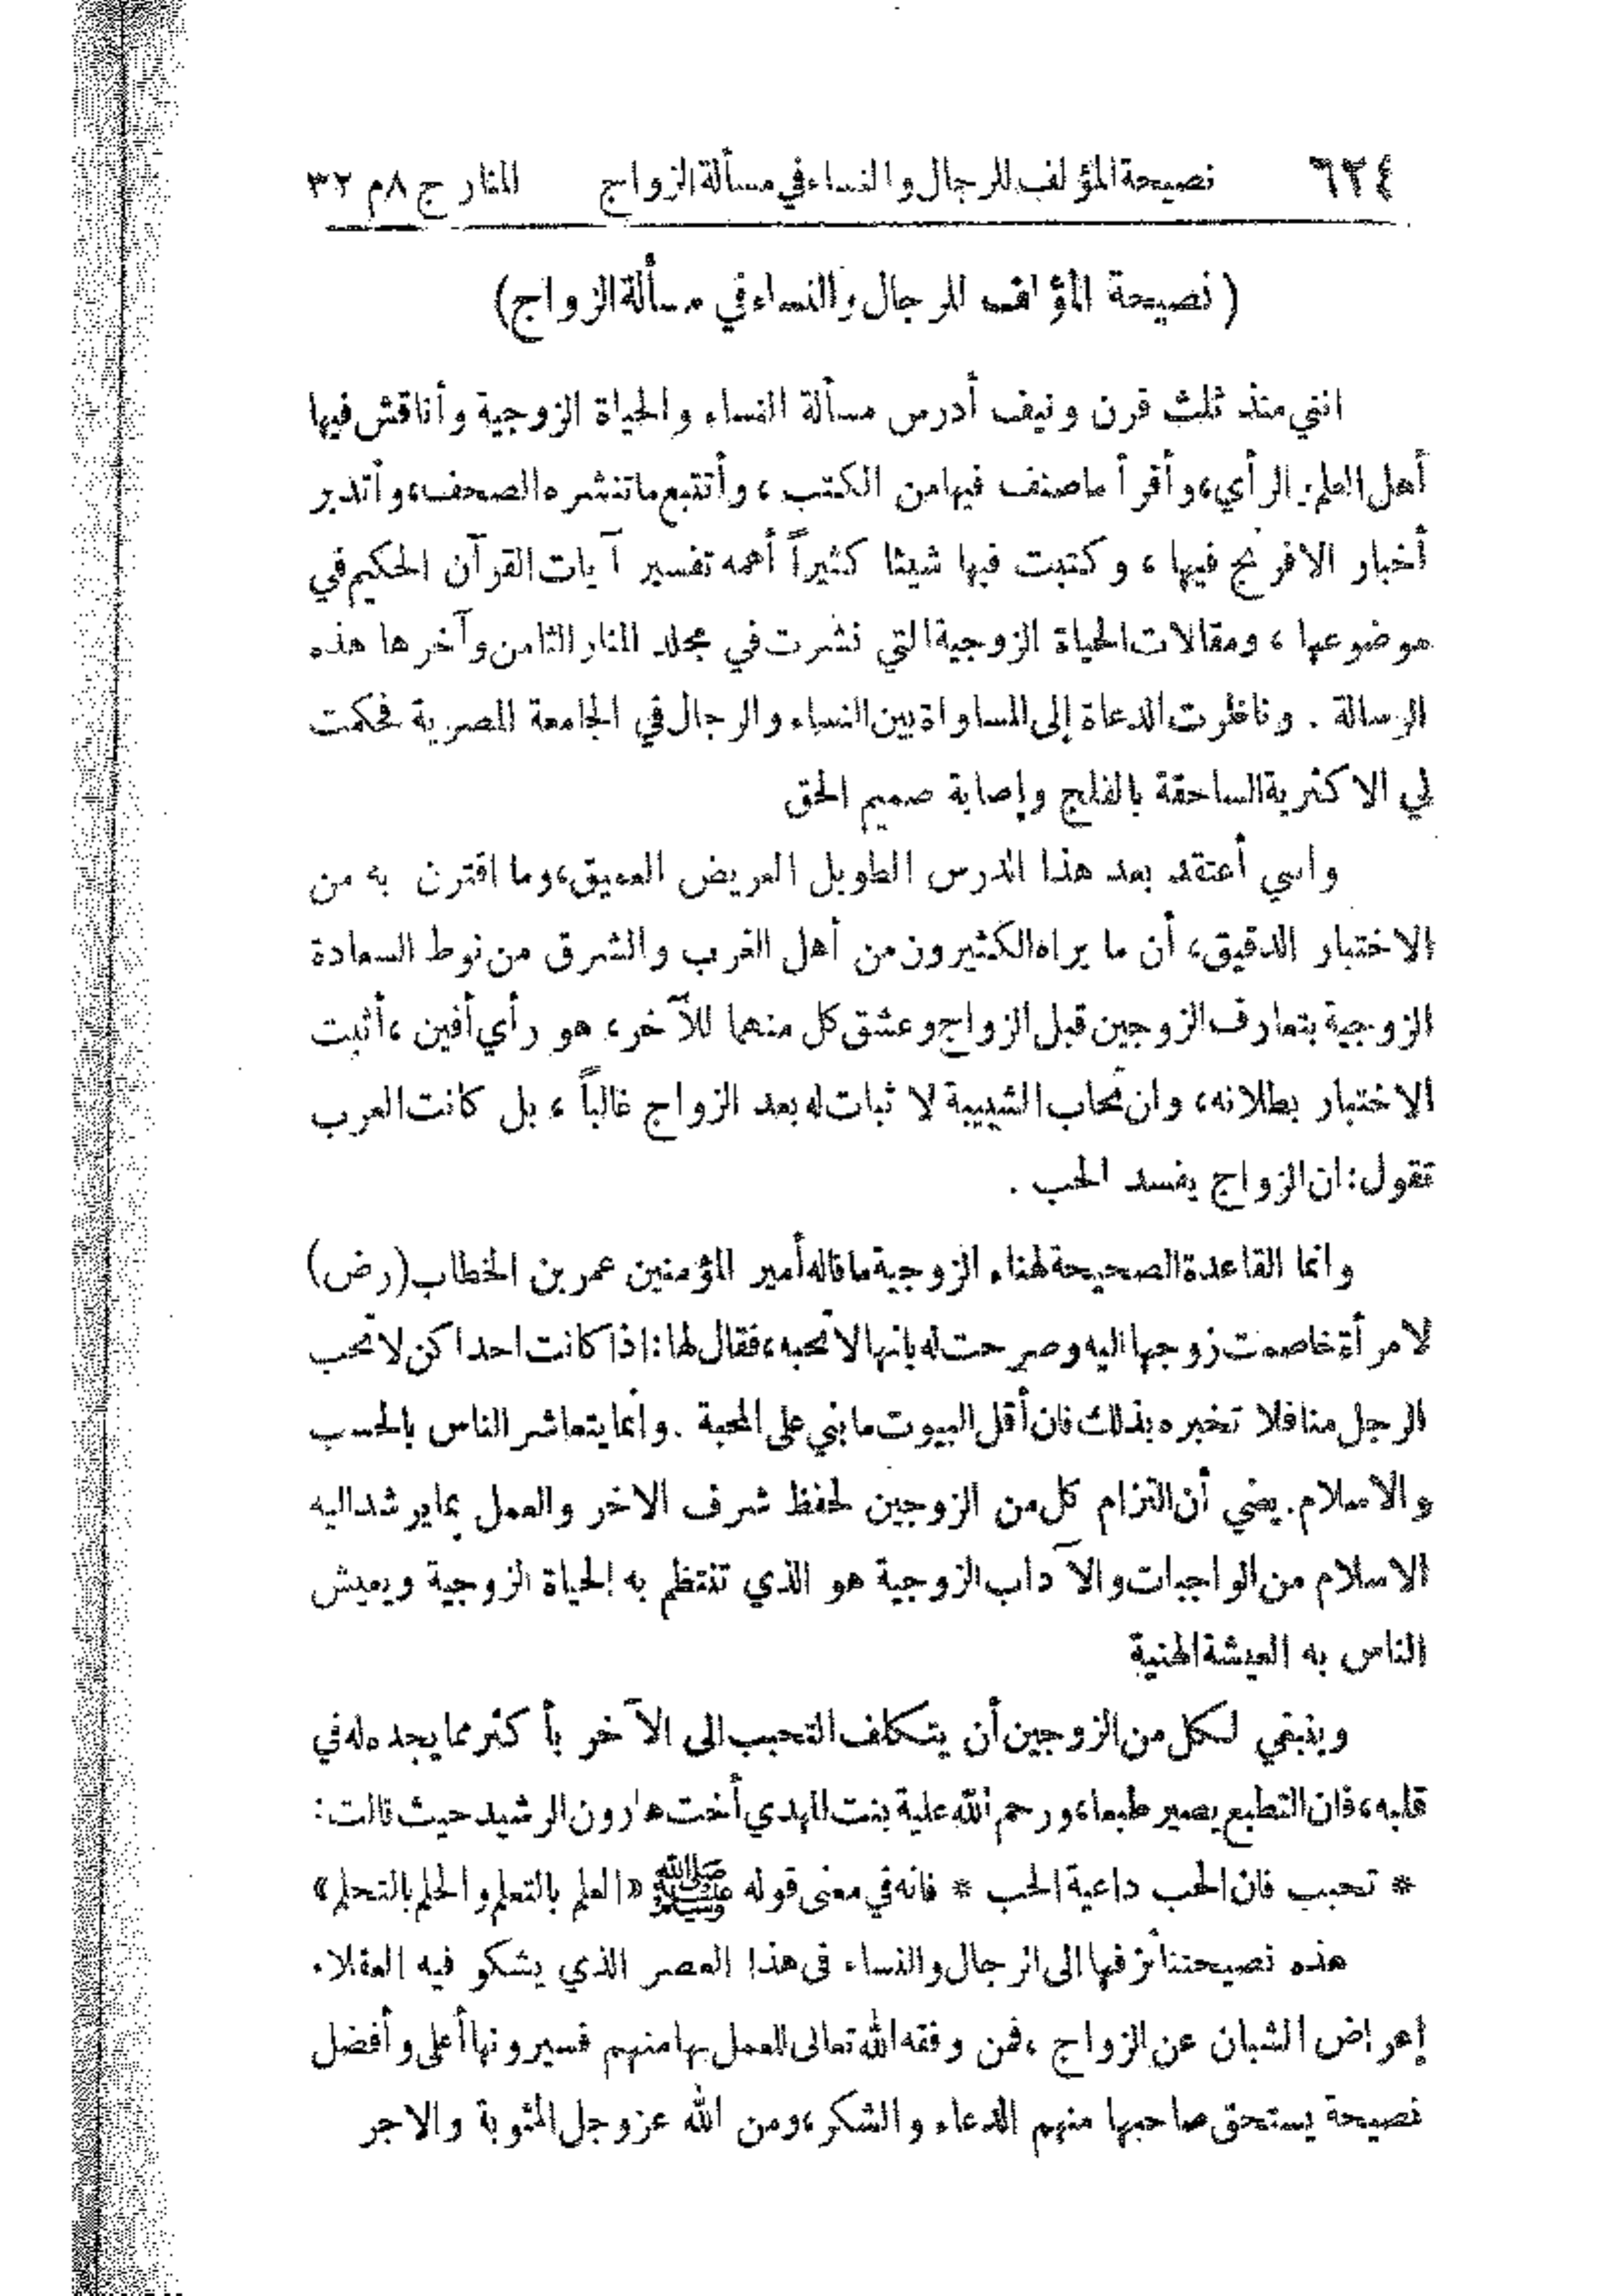 ٦٢٤ نصيحة المؤلف للرجال والنساء في مسألة الزواج المنار ج ٨ م ٣٢
( نصيحة المؤلف للرجال والنساء في مسألة الزواج )
انني منذ ثلث قرن ونيف أدرس مسألة النساء والحياة الزوجية وأناقش فيها
أهل العلم والرأي، وأقرأ ما صنف فيها من الكتب ، وأتتبع ما تنشره الصحف، وأتدبر
أخبار الافرنج فيها ، وكتبت فيها شيئا كثيراً أهمه تفسير آيات القرآن الحكيم في
موضوعها ، ومقالات الحياة الزوجية التي نشرت في مجلد المنار الثامن وآخرها هذه
الرسالة . وناظرت الدعاة إلى المساواة بين النساء والرجال في الجامعة المصرية فحكمت
لي الاكثرية الساحقة بالفلج وإصابة صميم الحق
وانني أعتقد بعد هذا الدرس الطويل العريض العميق، وما اقترن به من
الاختبار الدقيق، أن ما يراه الكثيرون من أهل الغرب والشرق من نوط السعادة
الزوجية بتعارف الزوجين قبل الزواج وعشق كل منهما للآخر، هو رأي أفين ، أثبت
الاختبار بطلانه، وان تحاب الشبيبة لا ثبات له بعد الزواج غالباً ، بل كانت العرب
تقول: ان الزواج يفسد الحب .
وانما القاعدة الصحيحة لهناء الزوجية ما قاله أمير المؤمنين عمر بن الخطاب (رض)
لامرأة خاصمت زوجها اليه وصرحت له بانها لا تحبه، فقال لها: إذا كانت احداكن لا تحب
الرجل منا فلا تخبره بذلك فان أقل البيوت ما بني على المحبة . وانما يتعاشر الناس بالحسب
والاسلام. يعني أن التزام كل من الزوجين لحفظ شرف الاخر والعمل بما يرشد اليه
الاسلام من الواجبات والآداب الزوجية هو الذي تنتظم به الحياة الزوجية ويعيش
الناس به العيشة الهنية
وينبغي لكل من الزوجين أن يتكلف التحبب الى الآخر بأكثر مما يجده له في
قلبه، فان التطبع يصير طبعا، ورحم الله علية بنت المهدي أخت هارون الرشيد حيث قالت:
* تحبب فان الحب داعية الحب * فانه في معنى قوله ﷺ «العلم بالتعلم والحلم بالتحلم»
هذه نصيحتنا نزفها الى الرجال والنساء في هذا العصر الذي يشكو فيه العقلاء
إعراض الشبان عن الزواج ، فمن وفقه الله تعالى للعمل بها منهم فسيرونها أعلى وأفضل
نصيحة يستحق صاحبها منهم الدعاء والشكر، ومن الله عز وجل المثوبة والاجر